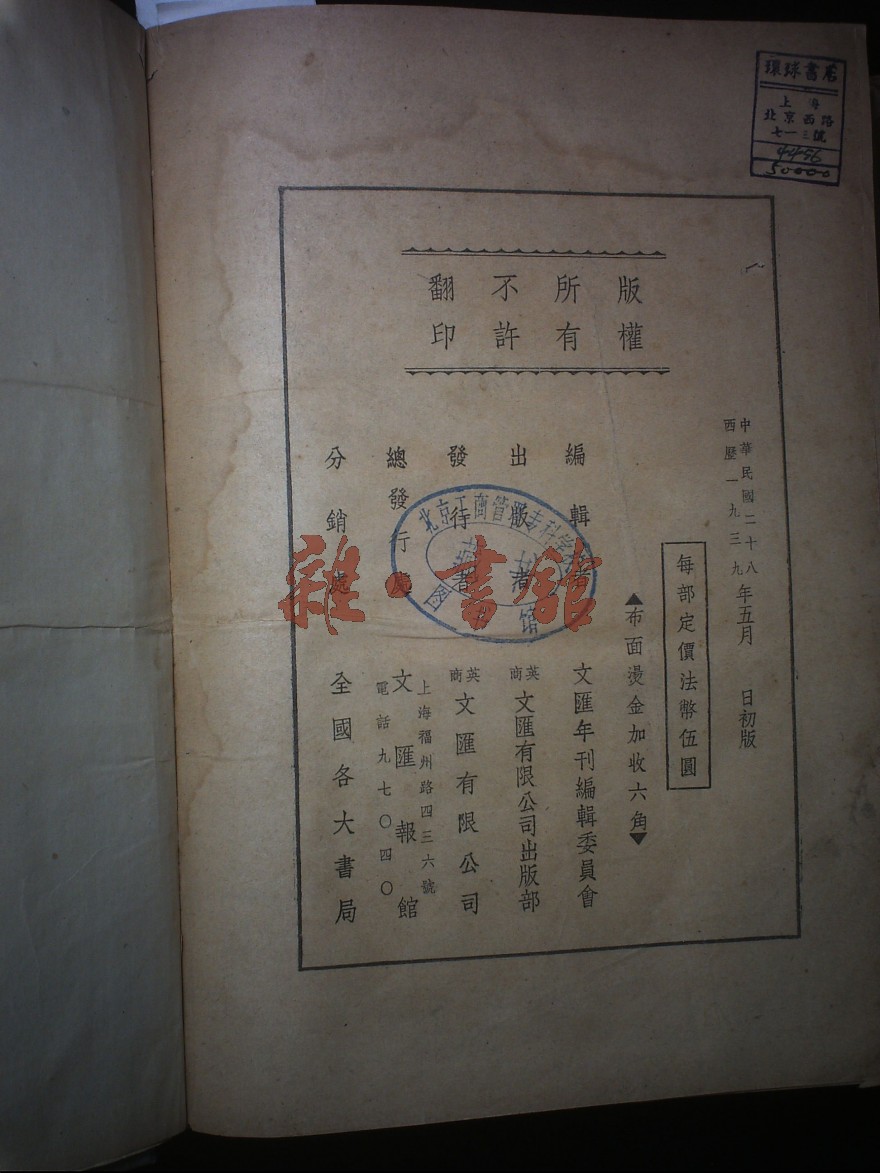 環球書店
上海
北京西路
七一三號
4456
50000
版權
所有
不許
翻印
中華民國二十八
西歷一九三九
年五月 日初版
每部定價法幣伍圓
▲布面燙金加收六角▼
編輯者 文匯年刊編輯委員會
出版者 英商文匯有限公司出版部
發行者 英商文匯有限公司
總發行處 文匯報館
上海福州路四三六號
電話九七〇四〇
分銷處 全國各大書局
北京工商管理专科学校
图 馆
雜·書館